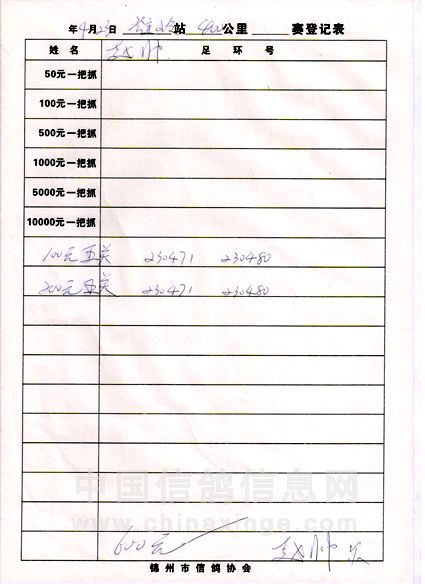 年4月23日 站 400公里 赛登记表
姓 名 赵帅 足 环 号
50元一把抓
100元一把抓
500元一把抓
1000元一把抓
5000元一把抓
10000元一把抓
100元五关 230471 230480
200元五关 230471 230480
中国信鸽信息网
www.chinaxinge.com
600元 赵帅
锦州市信鸽协会